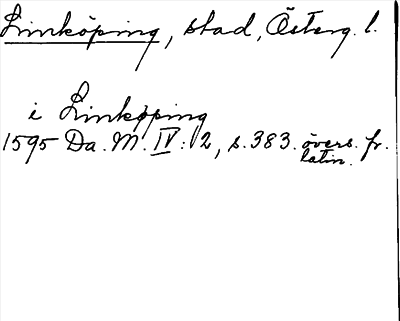 Linköping, stad, Österg. l.
i Linköping
1595 Da. M. IV: 2, s. 383. övers. fr. latin.